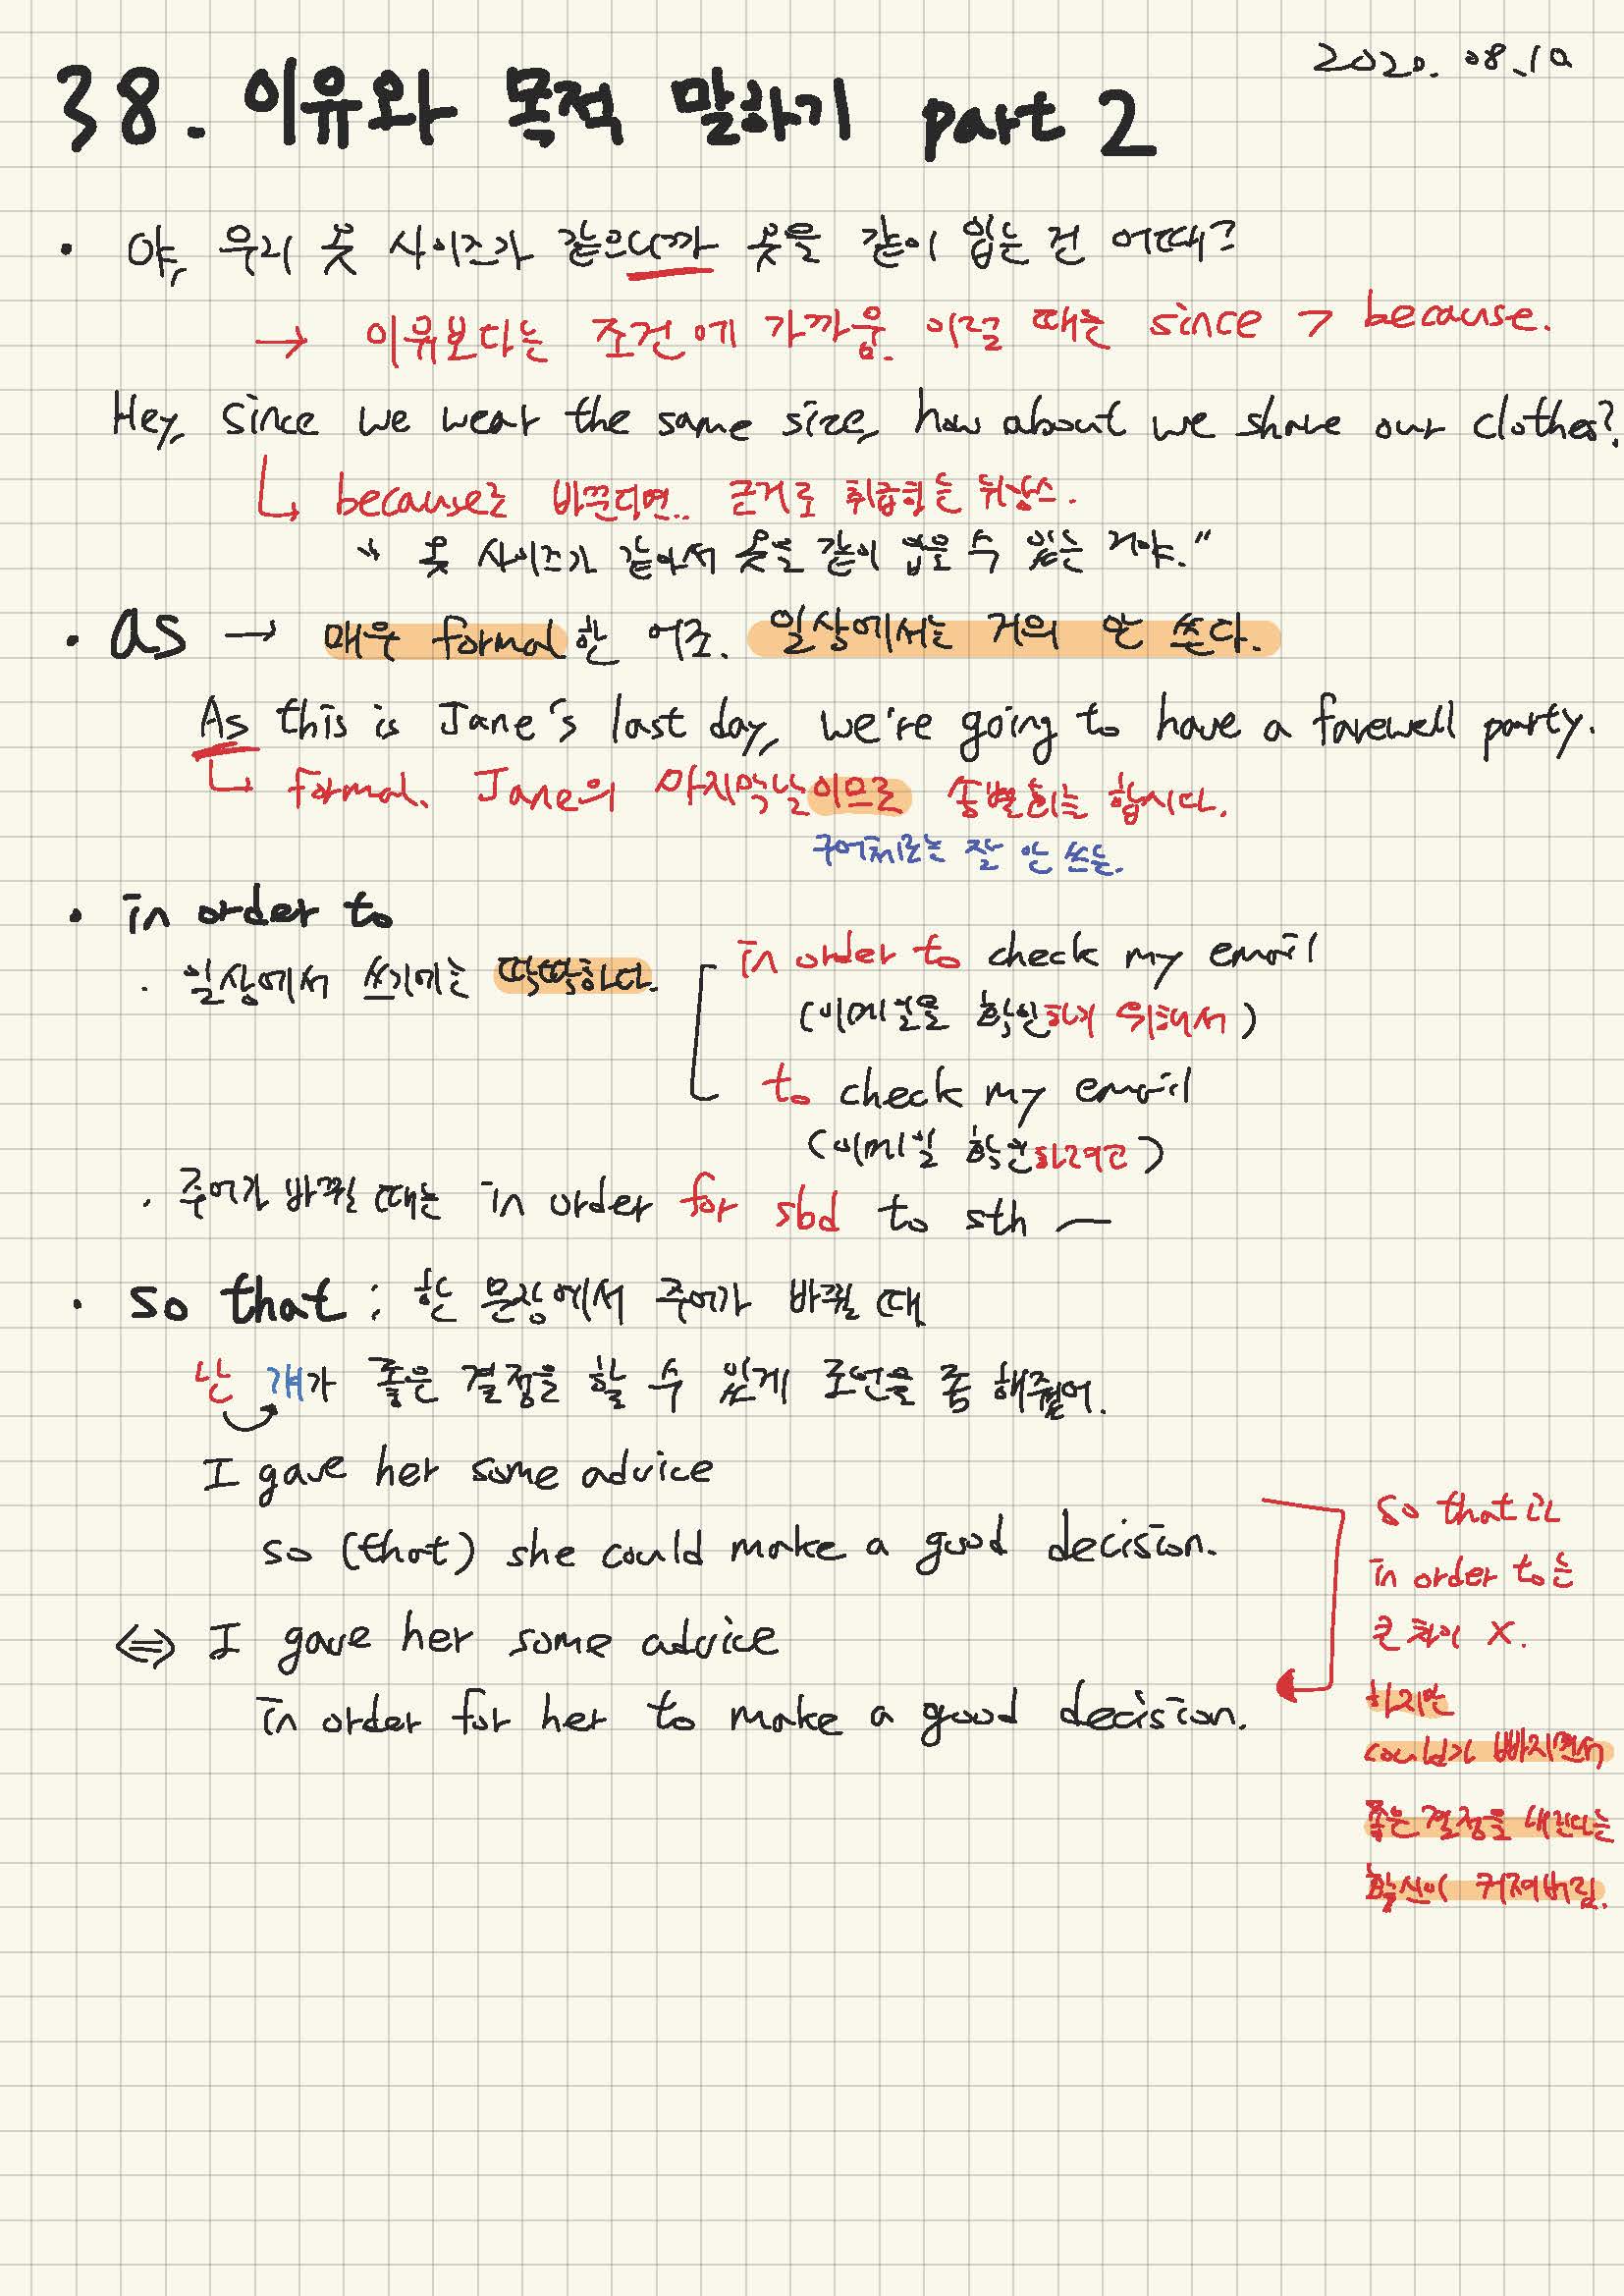 2020. 08.10
38. 이유와 목적 말하기 part 2
· 야, 우리 옷 사이즈가 같으니까 옷을 같이 입는 건 어때?
→ 이유보다는 조건에 가까움. 이럴 때는 since > because.
Hey, since we wear the same size, how about we share our clothes?
↳ because로 바꾼다면.. 근거로 취급하는 뉘앙스.
" 옷 사이즈가 같아서 옷을 같이 입을 수 있는 거야."
· as → 매우 formal한 어조. 일상에서는 거의 안 쓴다.
As this is Jane's last day, we're going to have a farewell party.
↳ formal. Jane의 마지막 날이므로 송별회를 합시다.
구어체로는 잘 안 쓰는.
· in order to
· 일상에서 쓰기에는 딱딱하다.
in order to check my email
(이메일을 확인하기 위해서)
to check my email
(이메일 확인하려고)
· 주어가 바뀔 때는 in order for sbd to sth —
· so that : 한 문장에서 주어가 바뀔 때
난 걔가 좋은 결정을 할 수 있게 조언을 좀 해줬어.
I gave her some advice
so (that) she could make a good decision.
⇔ I gave her some advice
in order for her to make a good decision.
so that과
in order to는
큰 차이 X.
하지만
could가 빠지면서
좋은 결정을 내린다는
확신이 커져버림.